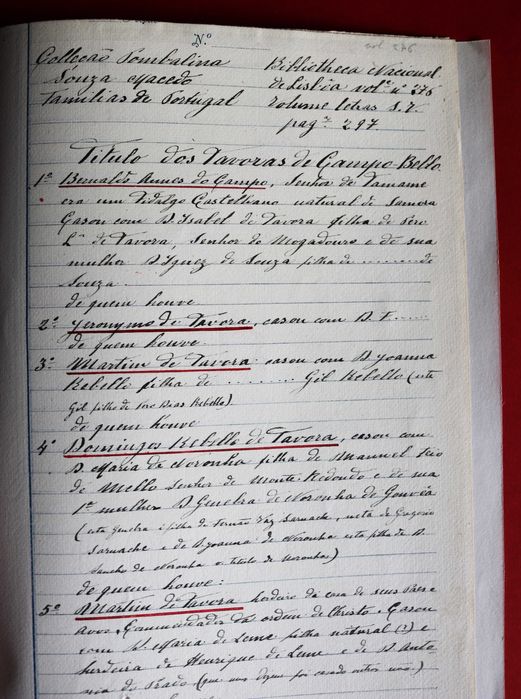 Nº
vol 276
Collecção Pombalina
Souza Macedo
Familias de Portugal
Bibliotheca Nacional
de Lisbôa vol. nº 376
volume letras S. V.
pagª. 297
Titulo dos Tavoras de Campo-Bello
1º Bernaldo Annes do Campo, Senhor de Tamame
era um Fidalgo Castelhano natural de Samora
Casou com D. Isabel de Tavora filha de Pero
Lº de Tavora, Senhor do Mogadouro e de sua
mulher D. Ignez de Souza filha de ......... de
Souza.
de quem houve
2º Jeronymo de Tavora, casou com D. F. .....
de quem houve
3º Martim de Tavora casou com D. Joanna
Rebello filha de ......... Gil Rebello (este
Gil filho de Pero Dias Rebello)
de quem houve
4º Domingos Rebello de Tavora, casou com
D. Maria de Noronha filha de Manuel
de Mello Senhor de Monte Redondo e de sua
1ª mulher D. Genebra de Noronha de Gouvêa
(esta Genebra é filha de Fernão Vaz Sarnache, neta de Gregorio
Sarnache e de D. Joanna de Noronha esta filha de D.
Sancho de Noronha o titulo de Noronhas)
de quem houve:
5º Martim de Tavora herdeiro da casa de seus Paes e
avos, Commendador da ordem de Christo. Casou
com D. Maria de Leme filha natural (?) e
herdeira de Henrique de Leme e de D. Anto
nia do Prado (que uns dizem foi casado outros não.)